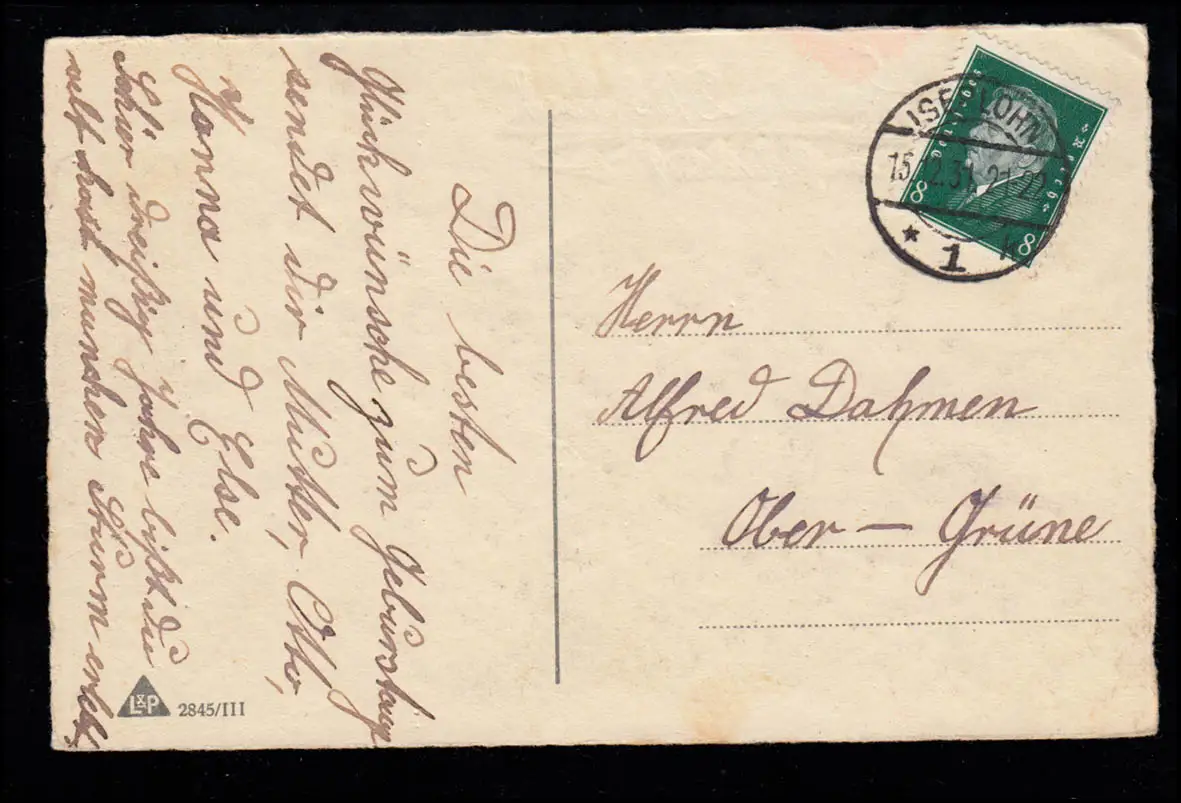 Die besten
Glückwünsche zum Geburstag
sendet dir Mutter, Otto,
Hanna und Else.
Schier dreißig Jahre bißt du
alt hast manchen Sturm erlebt,
L&P 2845/III
ISERLOHN
15.12.31.21-22
* 1 k
Deutsches Reich
8 8
Herrn
Alfred Dahmen
Ober – Grüne